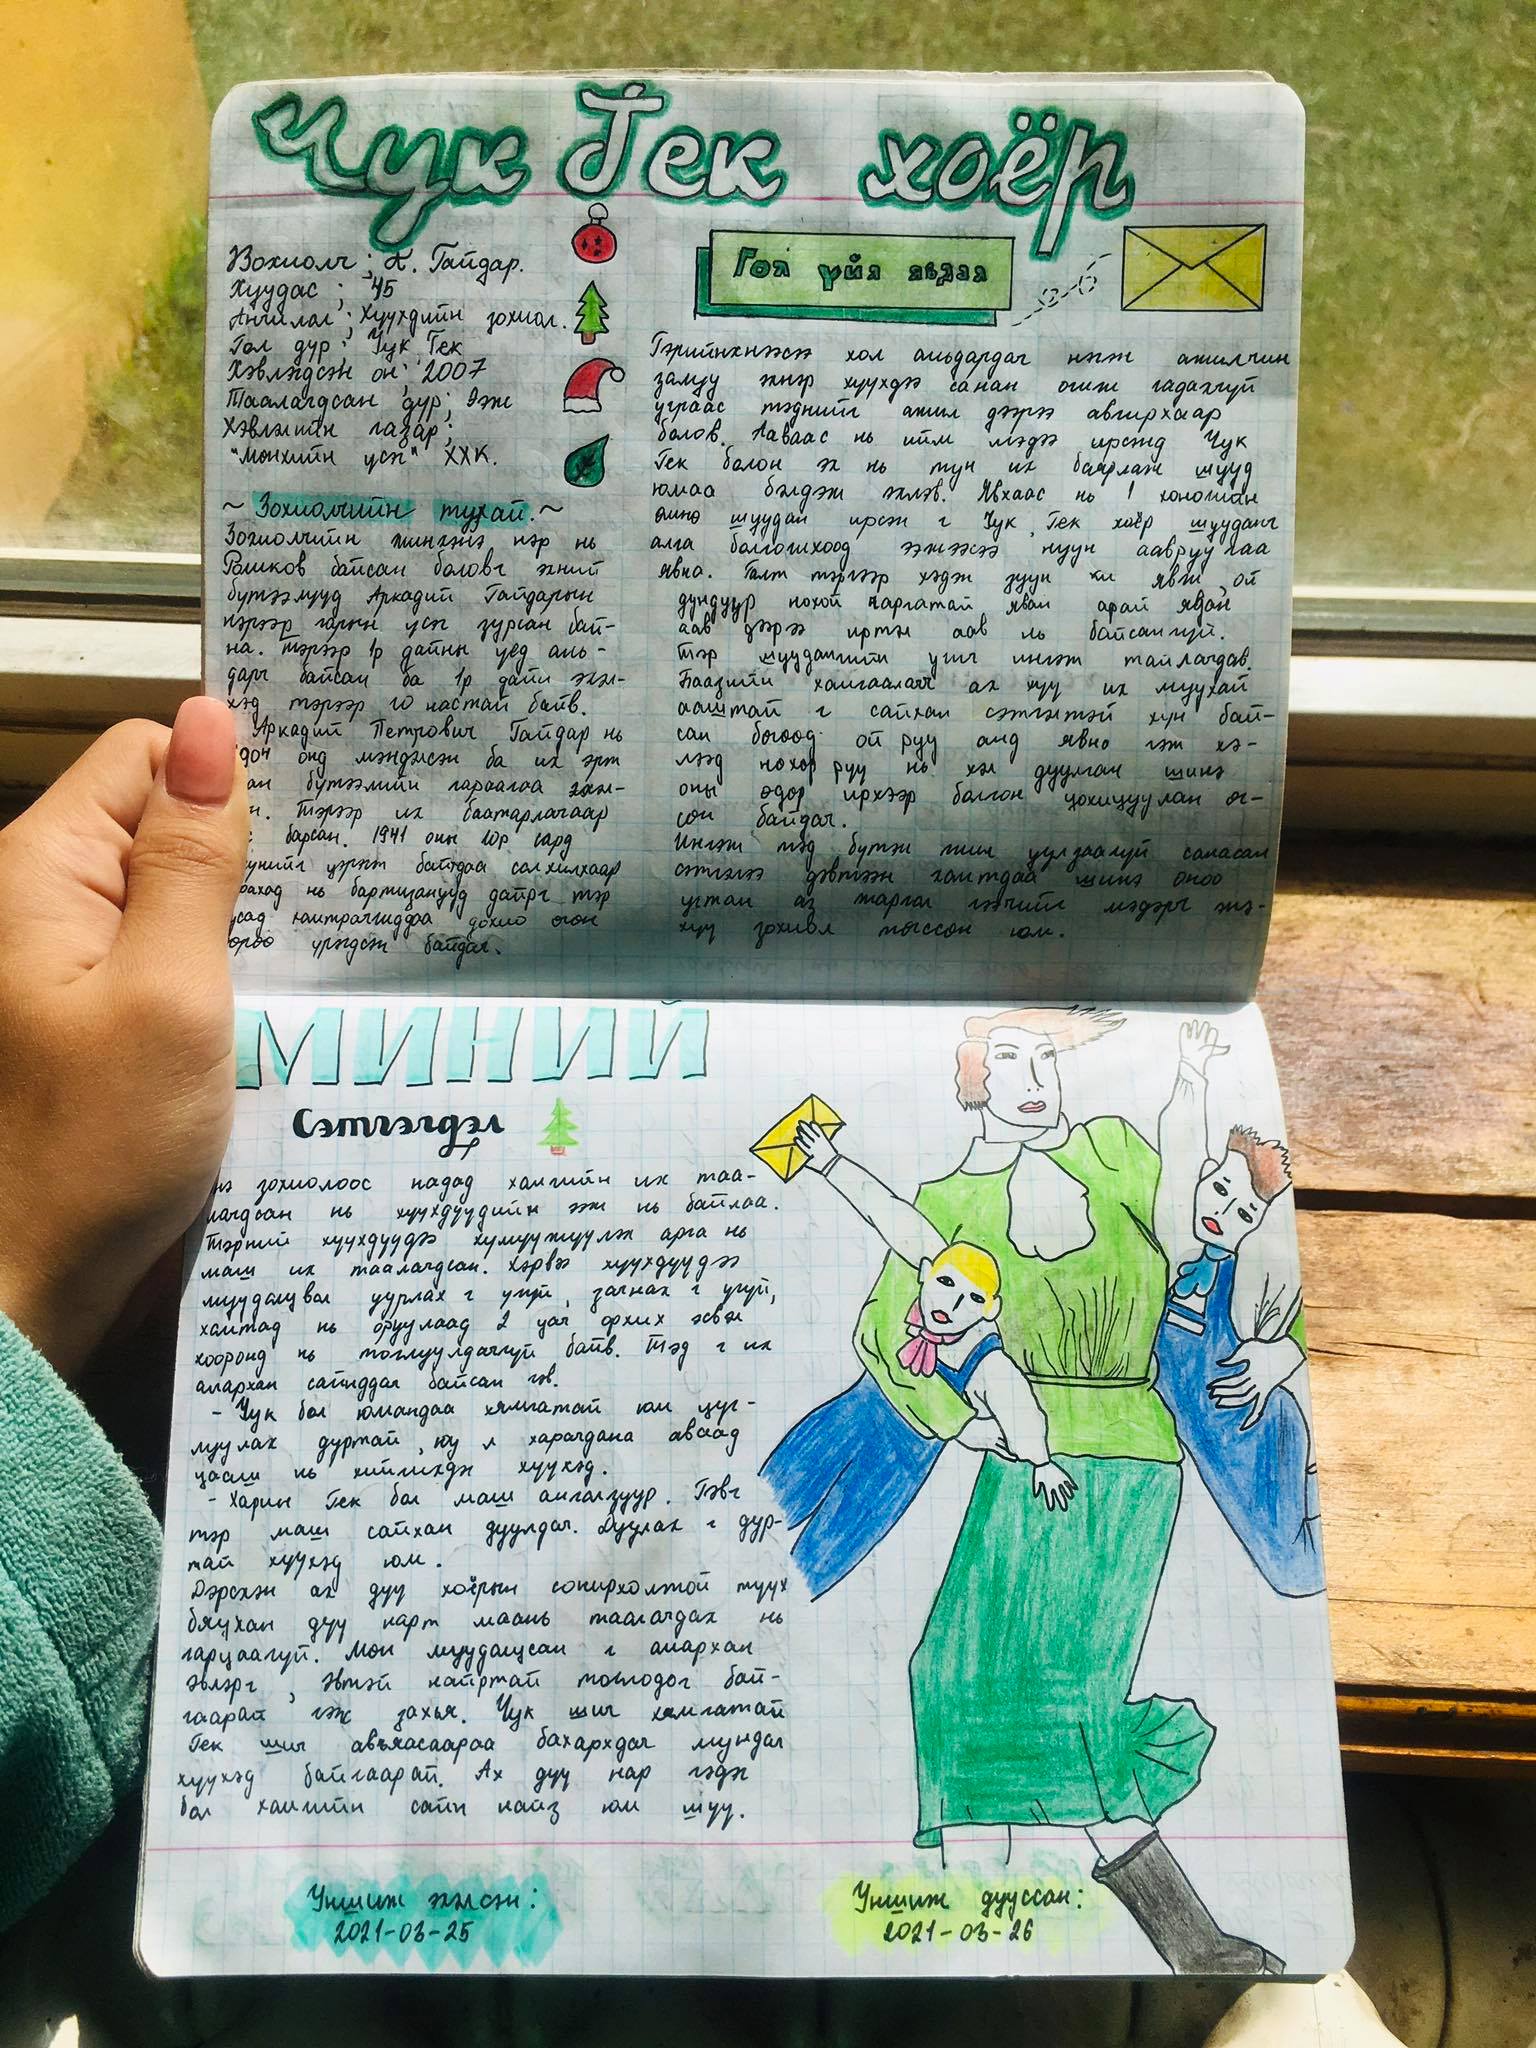 Чук Гек хоёр
Зохиолч; К. Гайдар.
Хуудас; 45
Ангилал; Хүүхдийн зохиол.
Гол дүр; Чук, Гек
Хэвлэгдсэн он; 2007
Таалагдсан дүр; Ээж
Хэвлэлийн газар;
"Мөнхийн үсэг" ХХК.
~ Зохиолчийн тухай. ~
Зохиолчийн жинхэнэ нэр нь
байсан боловч эхний
бүтээлүүд Аркадий Гайдарын
нэрээр гарын үсэг зурсан бай-
на. Тэрээр 1р дайны үед амь-
дарч байсан ба 1р дайн эхэл-
хэд тэрээр 10 настай байв.
Аркадий Петрович Гайдар нь
онд мэндэлсэн ба их эрт
бүтээлийн гараагаа эхэл-
Тэрээр их баатарлагаар
барсан. 1941 оны 10р сард
үүргэж байтдаа салхилхаар
нь партизанууд дайрч тэр
дохио өгөн
үрэгдсэн байдаг.
Гол үйл явдал
Гэрийнхнээсээ хол амьдардаг нэгэн ажилчин
залуу эхнэр хүүхдээ санан очиж чадахгүй
учраас тэднийг ажил дээрээ авчирхаар
болов. Ааваас нь ийм мэдээ ирсэнд Чук
Гек болон эх нь тун их баярлаж шууд
юмаа бэлдэж эхлэв. Явхаас нь 1 хоногийн
өмнө шуудан ирсэн ч Чук, Гек хоёр шууданг
алга болгочихоод ээжээсээ нуун аавруугаа
явна. Галт тэргээр хэдэн зуун км явж, ой
дундуур нохой чаргатай явж арай ядан
аав дээрээ иртэл аав нь байсангүй.
Тэр шуудангийн учир ингэж тайлагдав.
Баазийн хамгаалагч ах хүү их муухай
ааштай ч сайхан сэтгэлтэй хүн бай-
сан бөгөөд ой руу анд явна гэж хэ-
лээд нөхөр руу нь хэл дуулган шинэ
оны өдөр ирхээр болгон зохицуулан өг-
сөн байдаг.
Ингэж гэр бүлээрээ уулзаагүй санасан
сэтгэлээ дэвтээн хамтдаа шинэ оноо
угтан аз жаргал гэгчийг мэдэрч энэ-
хүү зохиол төгссөн юм.
МИНИЙ
Сэтгэгдэл
зохиолоос надад хамгийн их таа-
лагдсан нь хүүхдүүдийн ээж нь байлаа.
Тэрний хүүхдүүдээ хүмүүжүүлэх арга нь
маш их таалагдсан. Хэрвээ хүүхдүүдээ
муудалцвал уурлах ч үгүй, загнах ч үгүй,
хамтад нь оруулаад 2 цаг орхих эсвэл
хооронд нь тоглуулдаггүй байв. Тэд ч их
амархан сайнддаг байсан гэв.
- Чук бол юмандаа хямгатай юм цуг-
луулах дуртай, юу л харагдана аваад
цааш нь хийчихдэг хүүхэд.
- Харин Гек бол маш ангалзуур. Гэвч
тэр маш сайхан дуулдаг. Дуулах ч дур-
тай хүүхэд юм.
Дэрсхэн ах дүү хоёрын сонирхолтой түүх
бяцхан дүү нарт маань таалагдах нь
гарцаагүй. Мөн муудалцсан ч амархан
эвлэрч, эвтэй найртай тоглодог бай-
гаарай гэж захья. Чук шиг хямгатай
Гек шиг авъяасаараа бахархдаг мундаг
хүүхэд байгаарай. Ах дүү нар гэдэг
бол хамгийн сайн найз юм шүү.
Уншиж эхэлсэн:
2021-03-25
Уншиж дууссан:
2021-03-26